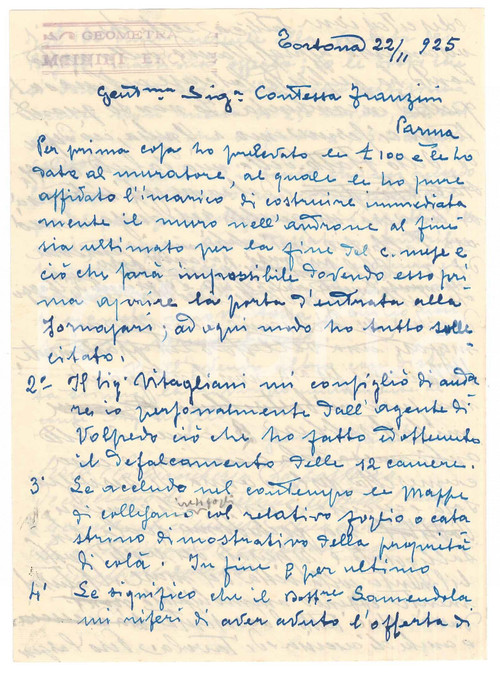 GEOMETRA
Tortona 22/11 925
Gent.ma Sig.a Contessa Franzini
Parma
Per prima cosa ho prelevato le £100 e le ho
date al muratore, al quale le ho pure
affidato l'incarico di costruire immediata
mente il muro nell'androne al fine
sia ultimato per la fine del c. mese e
ciò che sarà impossibile dovendo esso pri
ma aprire la porta d'entrata alla
Fornasari; ad ogni modo ho tutto solle
citato.
2° Il Sig. Vitagliani mi consigliò di anda
re io personalmente dall'agente di
Volpedo ciò che ho fatto ed ottenuto
il defalcamento delle 12 camere.
3° Le accludo nel contempo le Mappe
di col relativo foglio o cata
strino dimostrativo della proprietà
di colà. In fine e per ultimo
4° Le significo che il Dott.re Samendola
mi riferì di aver avuto l'offerta di